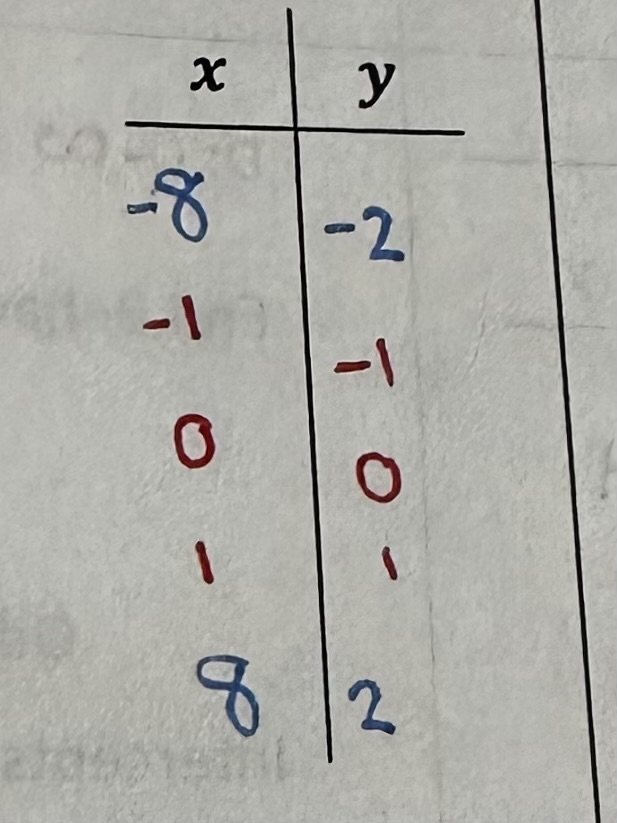 x y
-8 -2
-1 -1
0 0
1 1
8 2